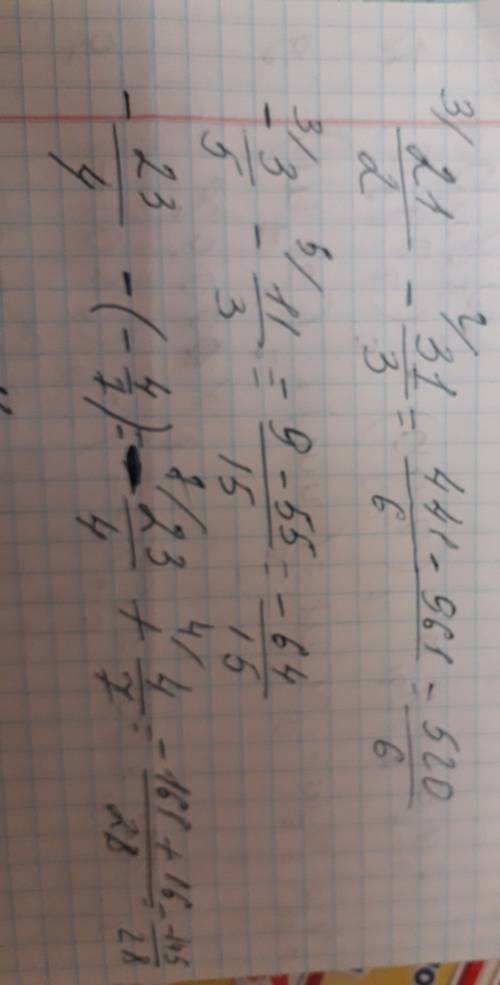 3/ 21/2 - 2/ 31/3 = 441 - 961/6 = 520/6
- 3/ 3/5 - 5/ 11/3 = 9 - 55/15 = - 64/15
- 23/4 - (- 4/7) = - 7/ 23/4 + 4/ 4/7 = - 161 + 16/28 = - 145/28